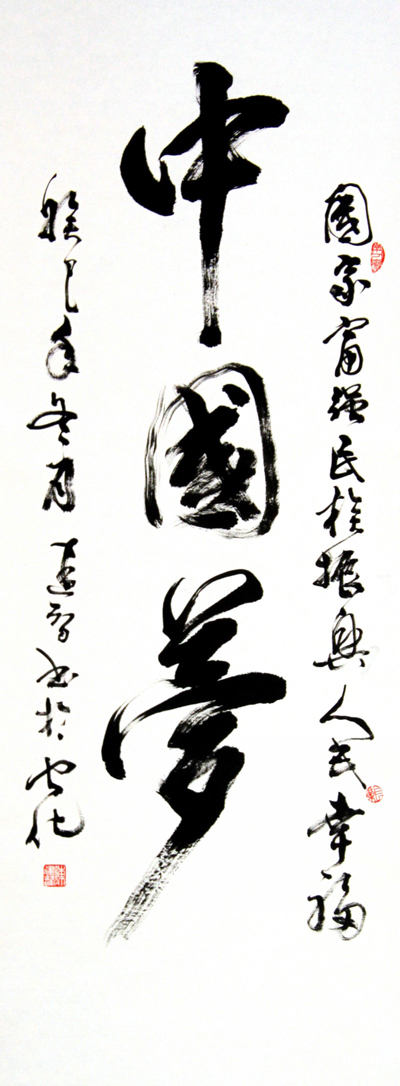 國家富强民族振興人民幸福
中國夢
癸巳年冬月建智书於安化